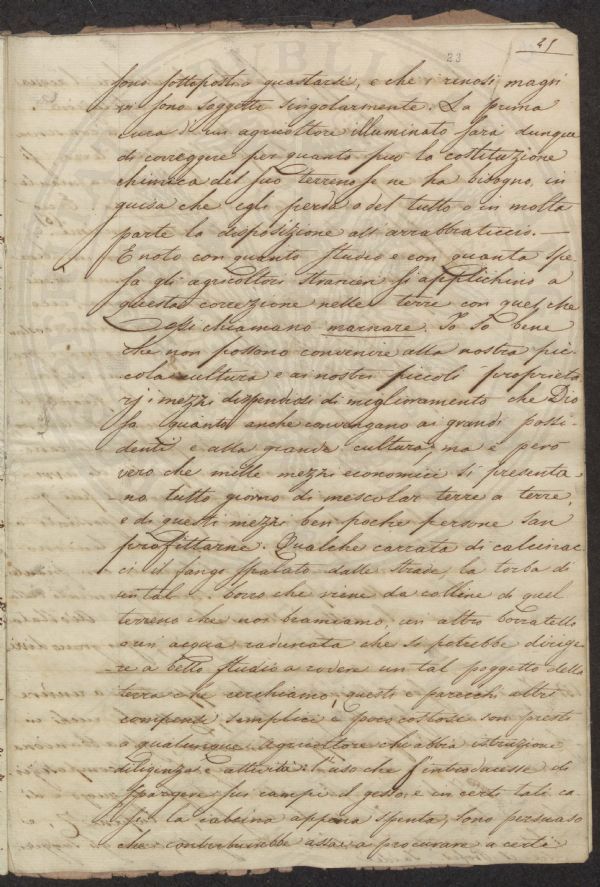 23
25
sono sottoposti a guastarsi, e che i renosi magri
vi sono soggetti singolarmente. La prima
cura d'un agricoltore illuminato sarà dunque
di correggere per quanto può la costituzione
chimica del suo terreno se ne ha bisogno, in
guisa che egli perda o del tutto o in molta
parte la disposizione all'arrabbiaticcio. —
È noto con quanto studio e con quanta spe-
sa gli agricoltori stranieri si applichino a
questa correzione nelle terre con quel che
Essi chiamano marnare. Io so bene
che non possono convenire alla nostra pic-
cola cultura e ai nostri piccoli proprieta-
rj i mezzi dispendiosi di miglioramento che Dio
sa quanto anche convengano ai grandi possi-
denti e alla grande cultura; ma è però
vero che mille mezzi economici si presenta-
no tutto giorno di mescolar terre a terre,
e di questi mezzi ben poche persone san
profittarne. Qualche carrata di calcinac-
ci il fango spalato dalle strade, la torba di
un tal borro che viene da colline di quel
terreno che noi bramiamo, un altro borratello
o un acqua radunata che si potrebbe dirige-
re a bello studio a rodere un tal poggetto della
terra che cerchiamo, questi e parecchi altri
compensi semplici e poco costosi son presti
a qualunque agricoltore che abbia istruzione
diligenza e attività: l'uso che s'introducesse di
spargere sui campi il gesso, e in certi tali ca-
si la calcina appena spenta, sono persuaso
che contribuirebbe assai a procurare a certi